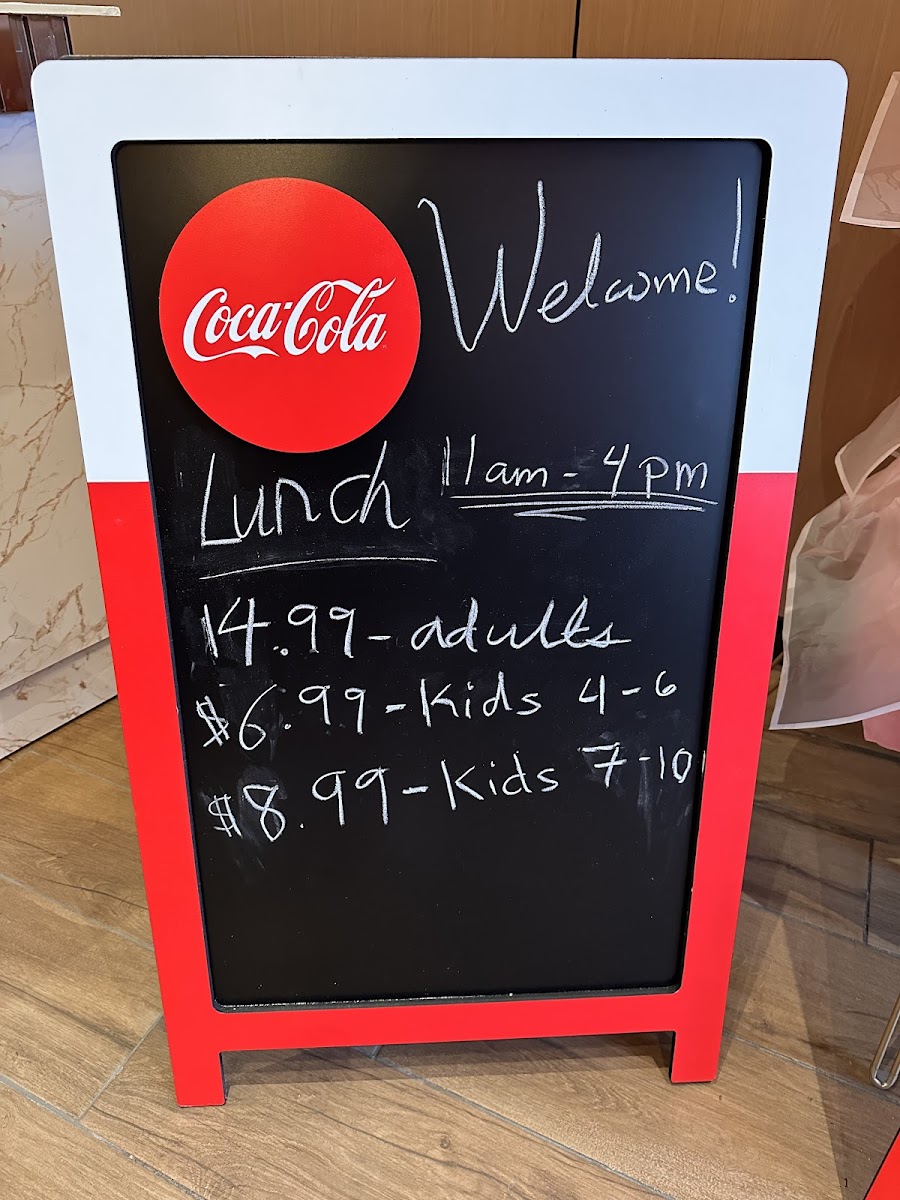 Welcome!
Coca-Cola
Lunch 11am - 4pm
14.99 - adults
$6.99 - Kids 4-6
$8.99 - Kids 7-10